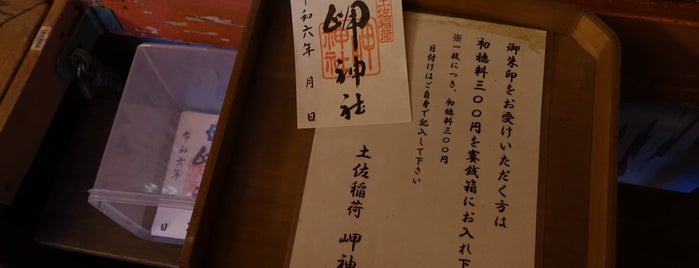 御朱印をお受けいただく方は
初穂料三〇〇円を賽銭箱にお入れ下
※一枚につき、初穂料三〇〇円
日付けはご自身で記入して下さい
土佐稲荷 岬神
土佐稲荷
岬神社
令和六年 月 日
令和六年 月 日